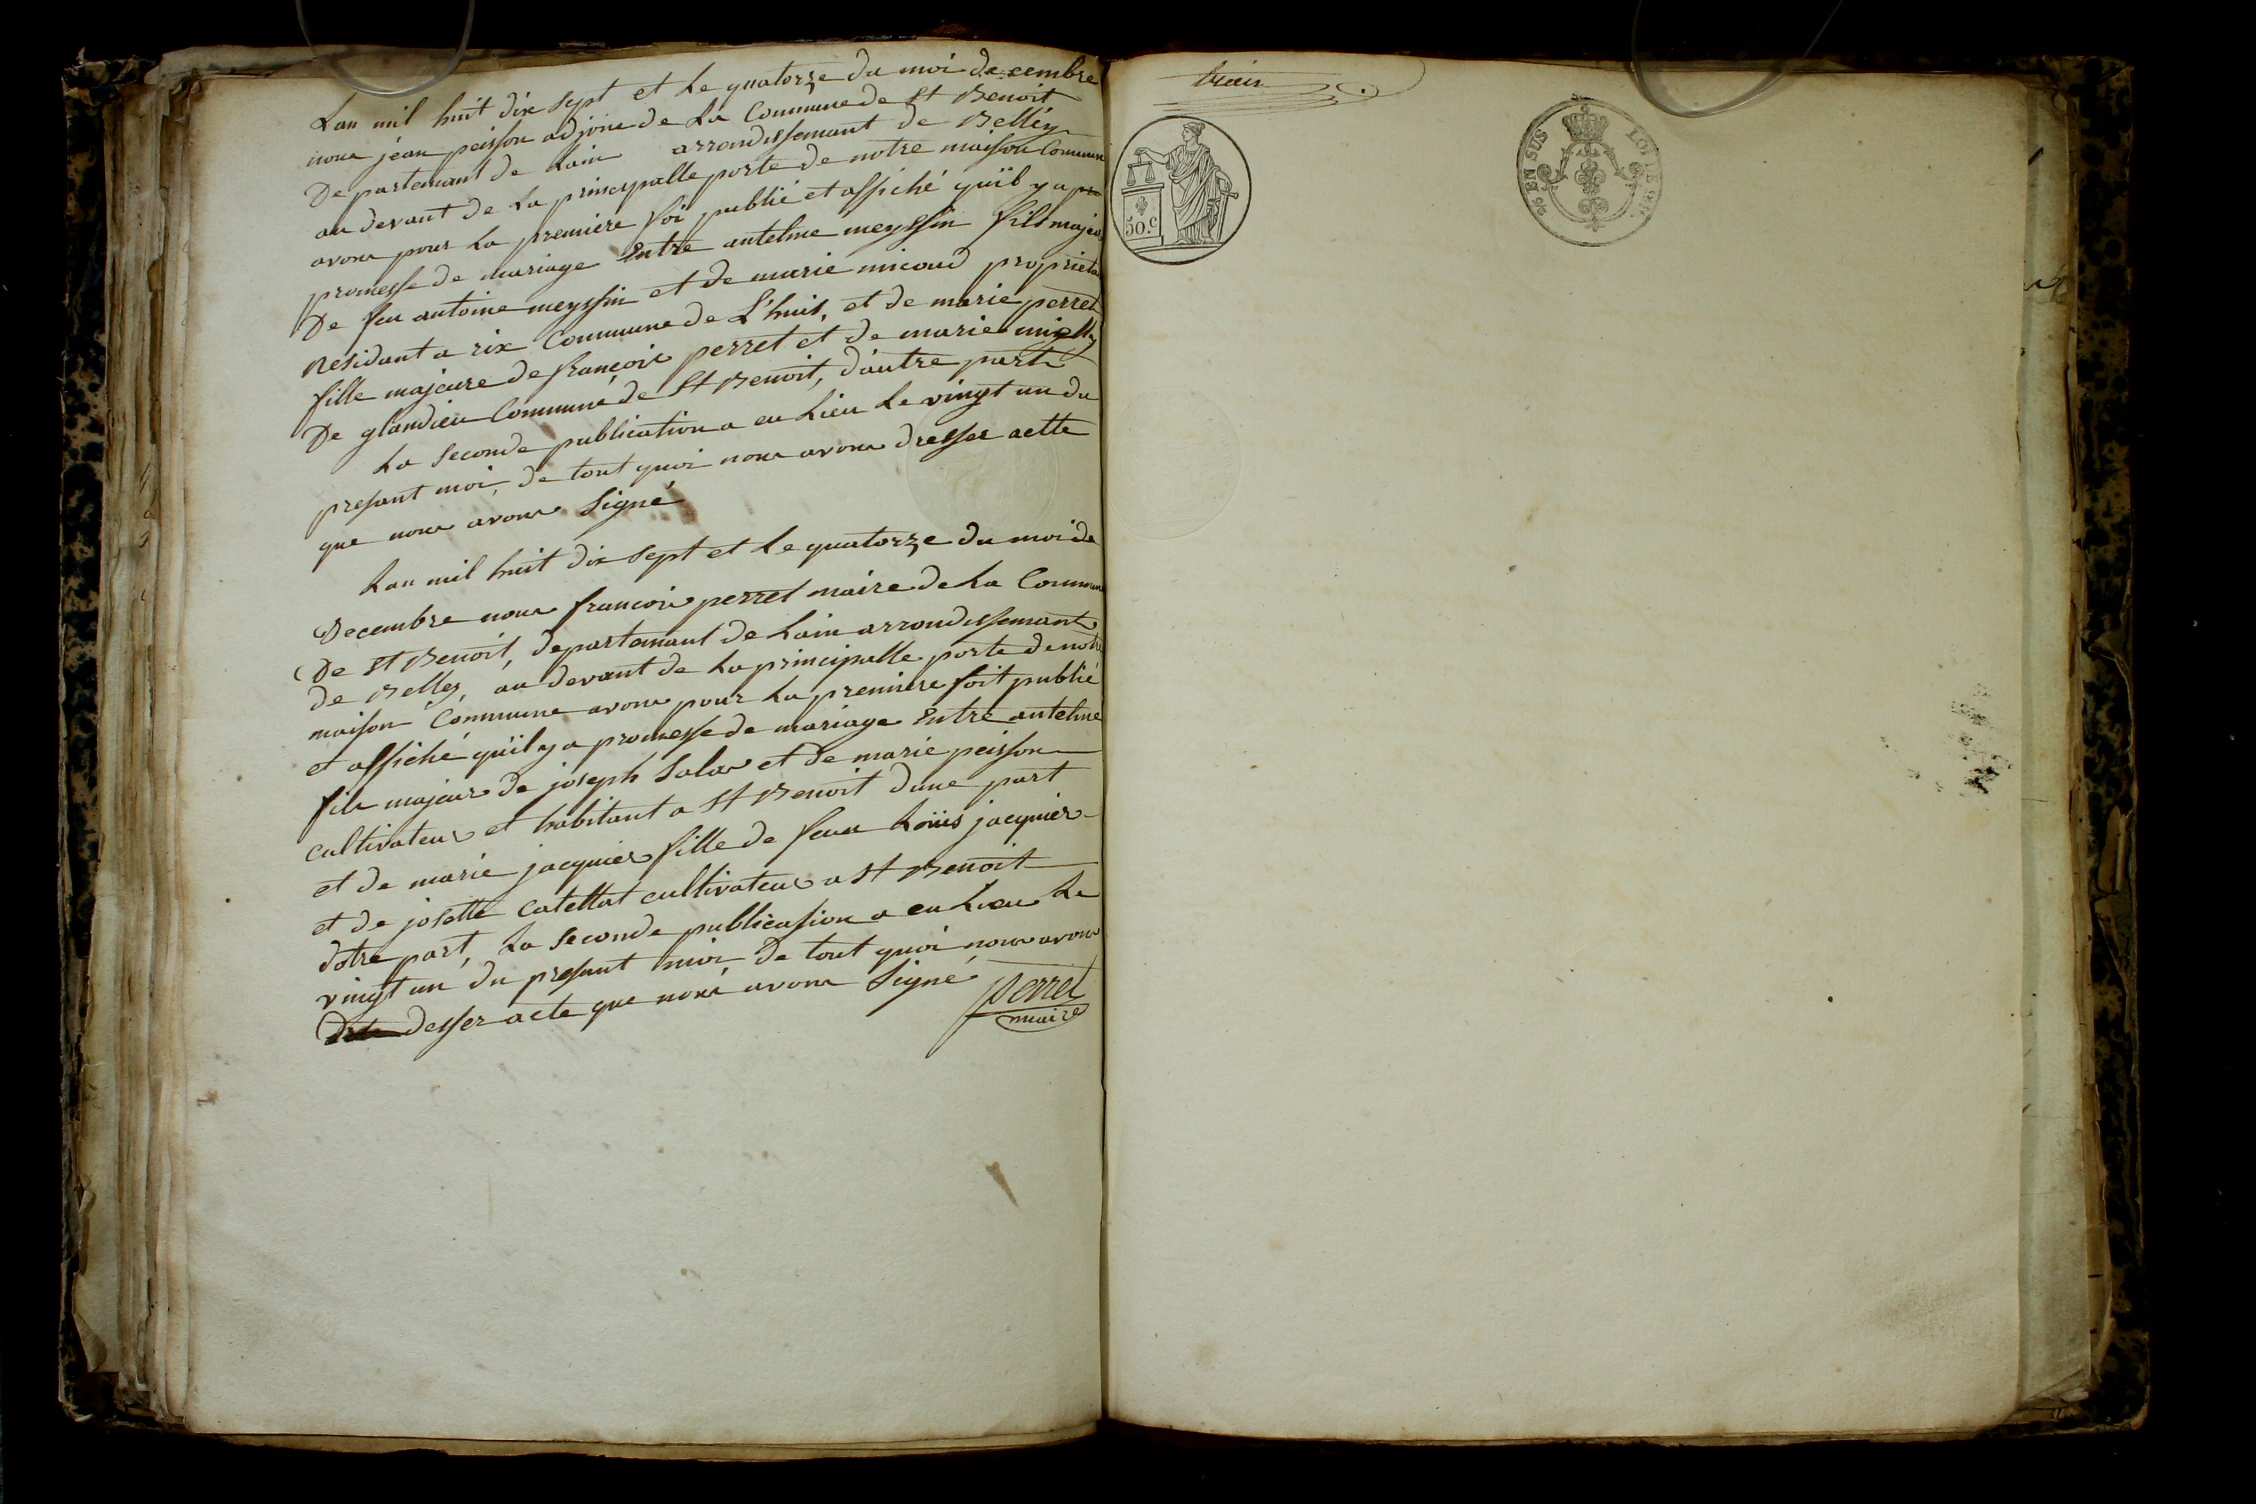 Lan mil huit dix sept et le quatorze du moi decembre
nous jean peisson adjoin de La Commune de st Benoit
Departemant de Lain arrondissemant de Belley
au devant de La principalle porte de notre maison Commune
avons pour La premiere foi publié et affiché quil y a
promesse de mariage Entre antelme meyssin fils majeur
De feu antoine meyssin et de marie micoud
Residant a rix Commune de L'huis, et de marie perret
fille majeure de françois perret et de marie
De glandieu Commune de St Benoit, dautre part
La seconde publication a eu Lieu Le vingt un du
presant moi, de tout quoi nous avons dresser actte
que nous avons Signé
Lan mil huit dix sept et Le quatorze du moi de
Decembre nous francois perret maire de La Commune
De st Benoit, departemant de Lain arrondissemant
de Belley, au devant de La principalle porte de notre
maison Commune avons pour La premiere foit publié
et affiché quil y a promesse de mariage Entre antelme
fils majeur de joseph Salar et de marie peisson
cultivateur et habitant a St Benoit dune part
et de marie jacquier fille de feux Loüis jacquier
et de josette catellat cultivateur a st Benoit
dotre part, La seconde publicasion a eu Lieu Le
vingt un du presant moi de tout quoi nous avons
desser acte que nous avons Signé
perret
maire
50.C
EN SUS
LOI DE